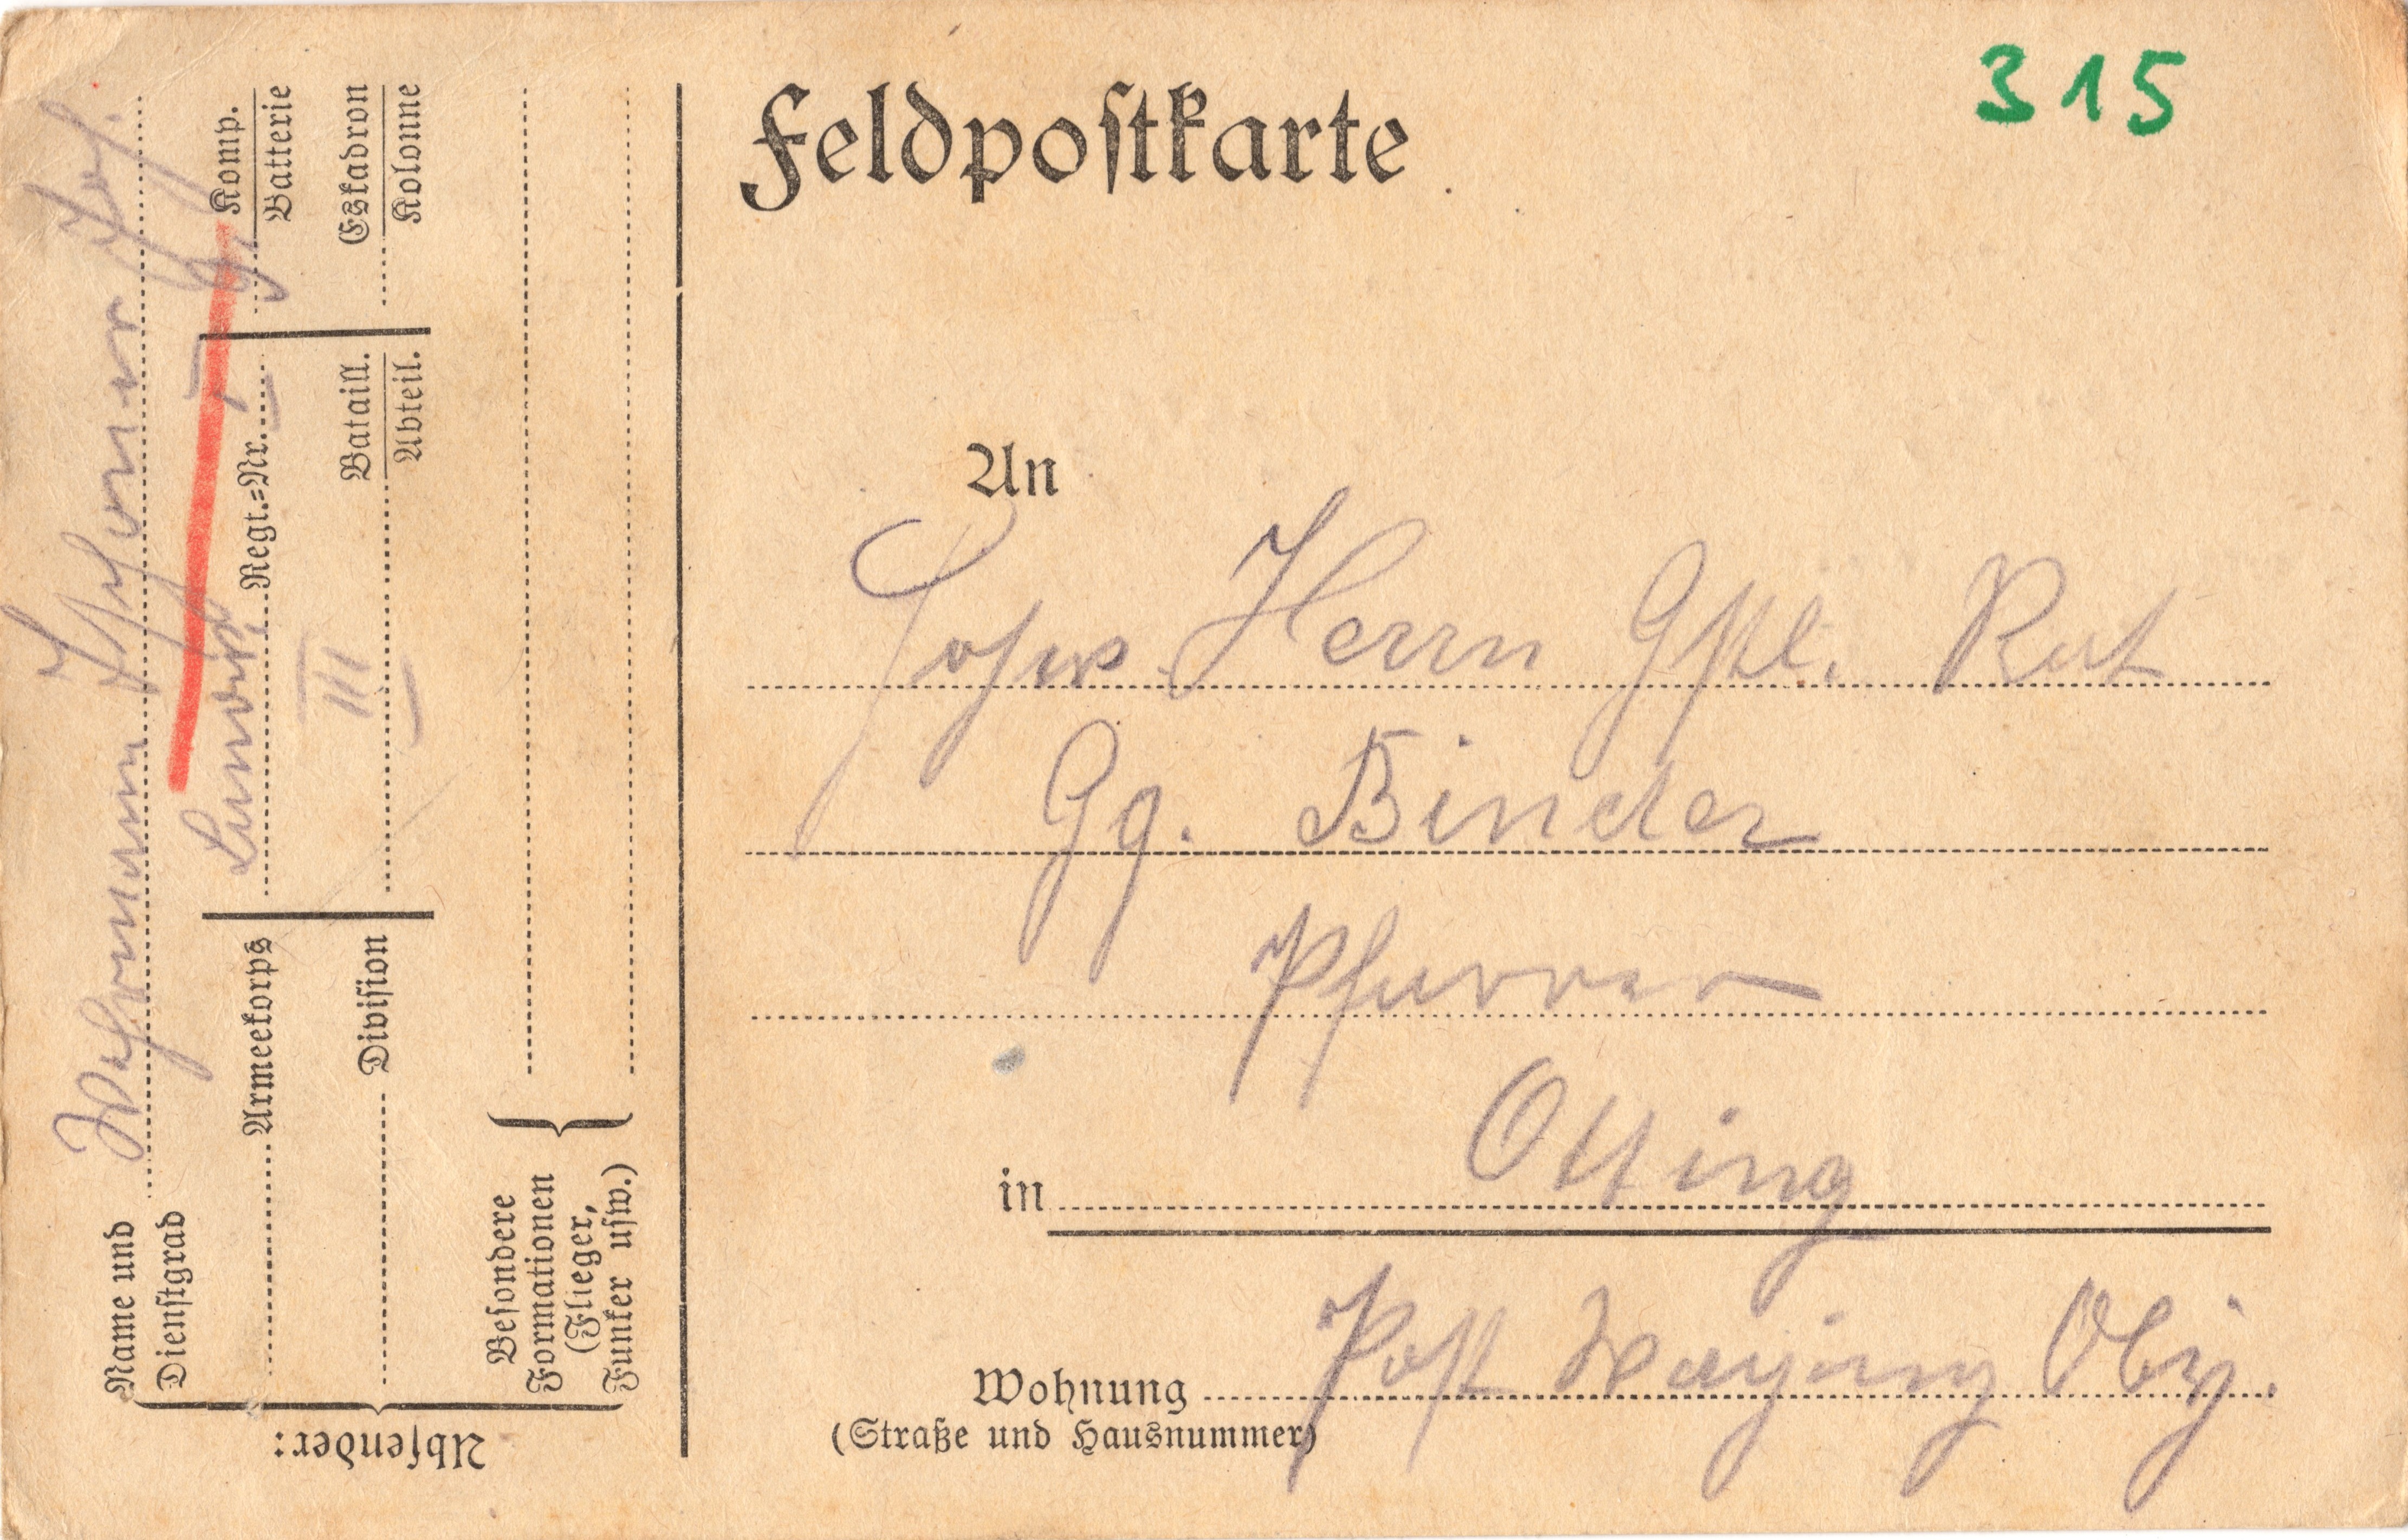 315
Feldpostkarte
An
Herrn Gstl. Rat
Gg. Binder
Pfarrer
in Otting
Post Waging Oby.
Wohnung
(Straße und Hausnummer)
Absender:
Name und
Dienstgrad
Wehrmann
Armeekorps
Regt.=Nr. I
Komp.
Batterie
Division
III
Bataill.
Abteil.
Eskadron
Kolonne
Besondere
Formationen
(Flieger,
Funker usw.)